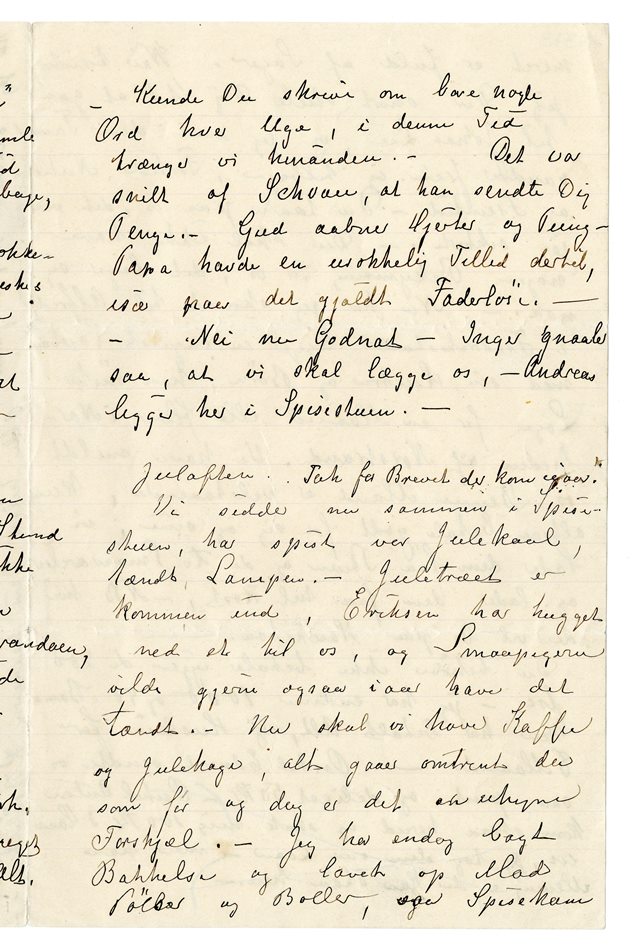 – Kunde Du skrive om bare nogle
Ord hver Uge, i denne Tid
trænger vi hinanden. – Det var
snilt af Schou, at han sendte Dig
Penge. – Gud aabner Hjerter og Pung –
Papa havde en urokkelig Tillid dertil,
især naar det gjaldt Faderløse. –
– Nei nu Godnat – Inger gnaaler
saa, at vi skal lægge os, – Andreas
ligger her i Spisestuen. –
Juleaften. . Tak for Brevet der kom igaar.
Vi sidde nu sammen i Spise-
stuen, har spist vor Julekaal,
tændt Lampen. – Juletræet er
kommen ind, Eriksen har hugget
ned et til os, og Smaapigerne
vilde gjerne ogsaa iaar have det
tændt. – Nu skal vi have Kaffe
og Julekage, alt gaar omtrent
som før og dog er det en uhyre
Forskjæl. – Jeg har endog bagt
Bakkelse og lavet op Mad
Pølser og Boller, Spisekam